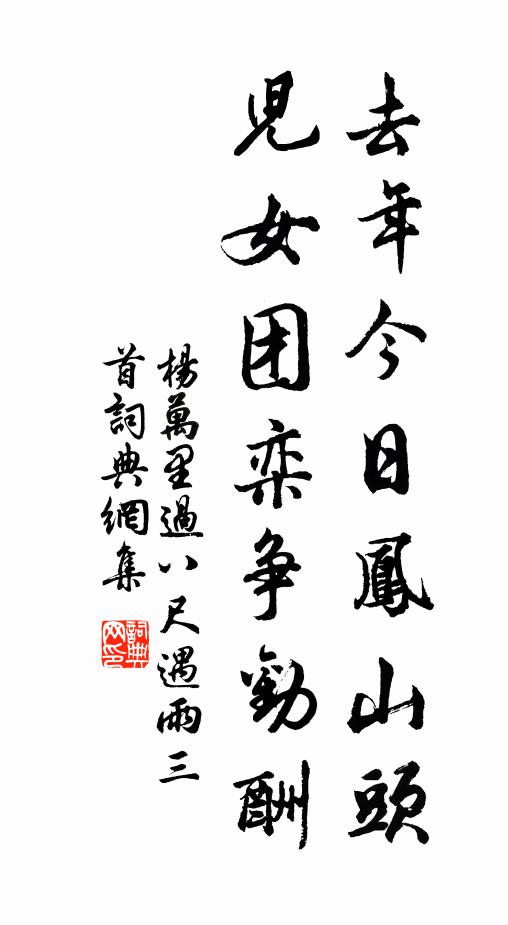 去年今日鳳山頭
児女团栾争勸酬
楊萬里過八尺遇雨三
首詞典網集
詞典
网印